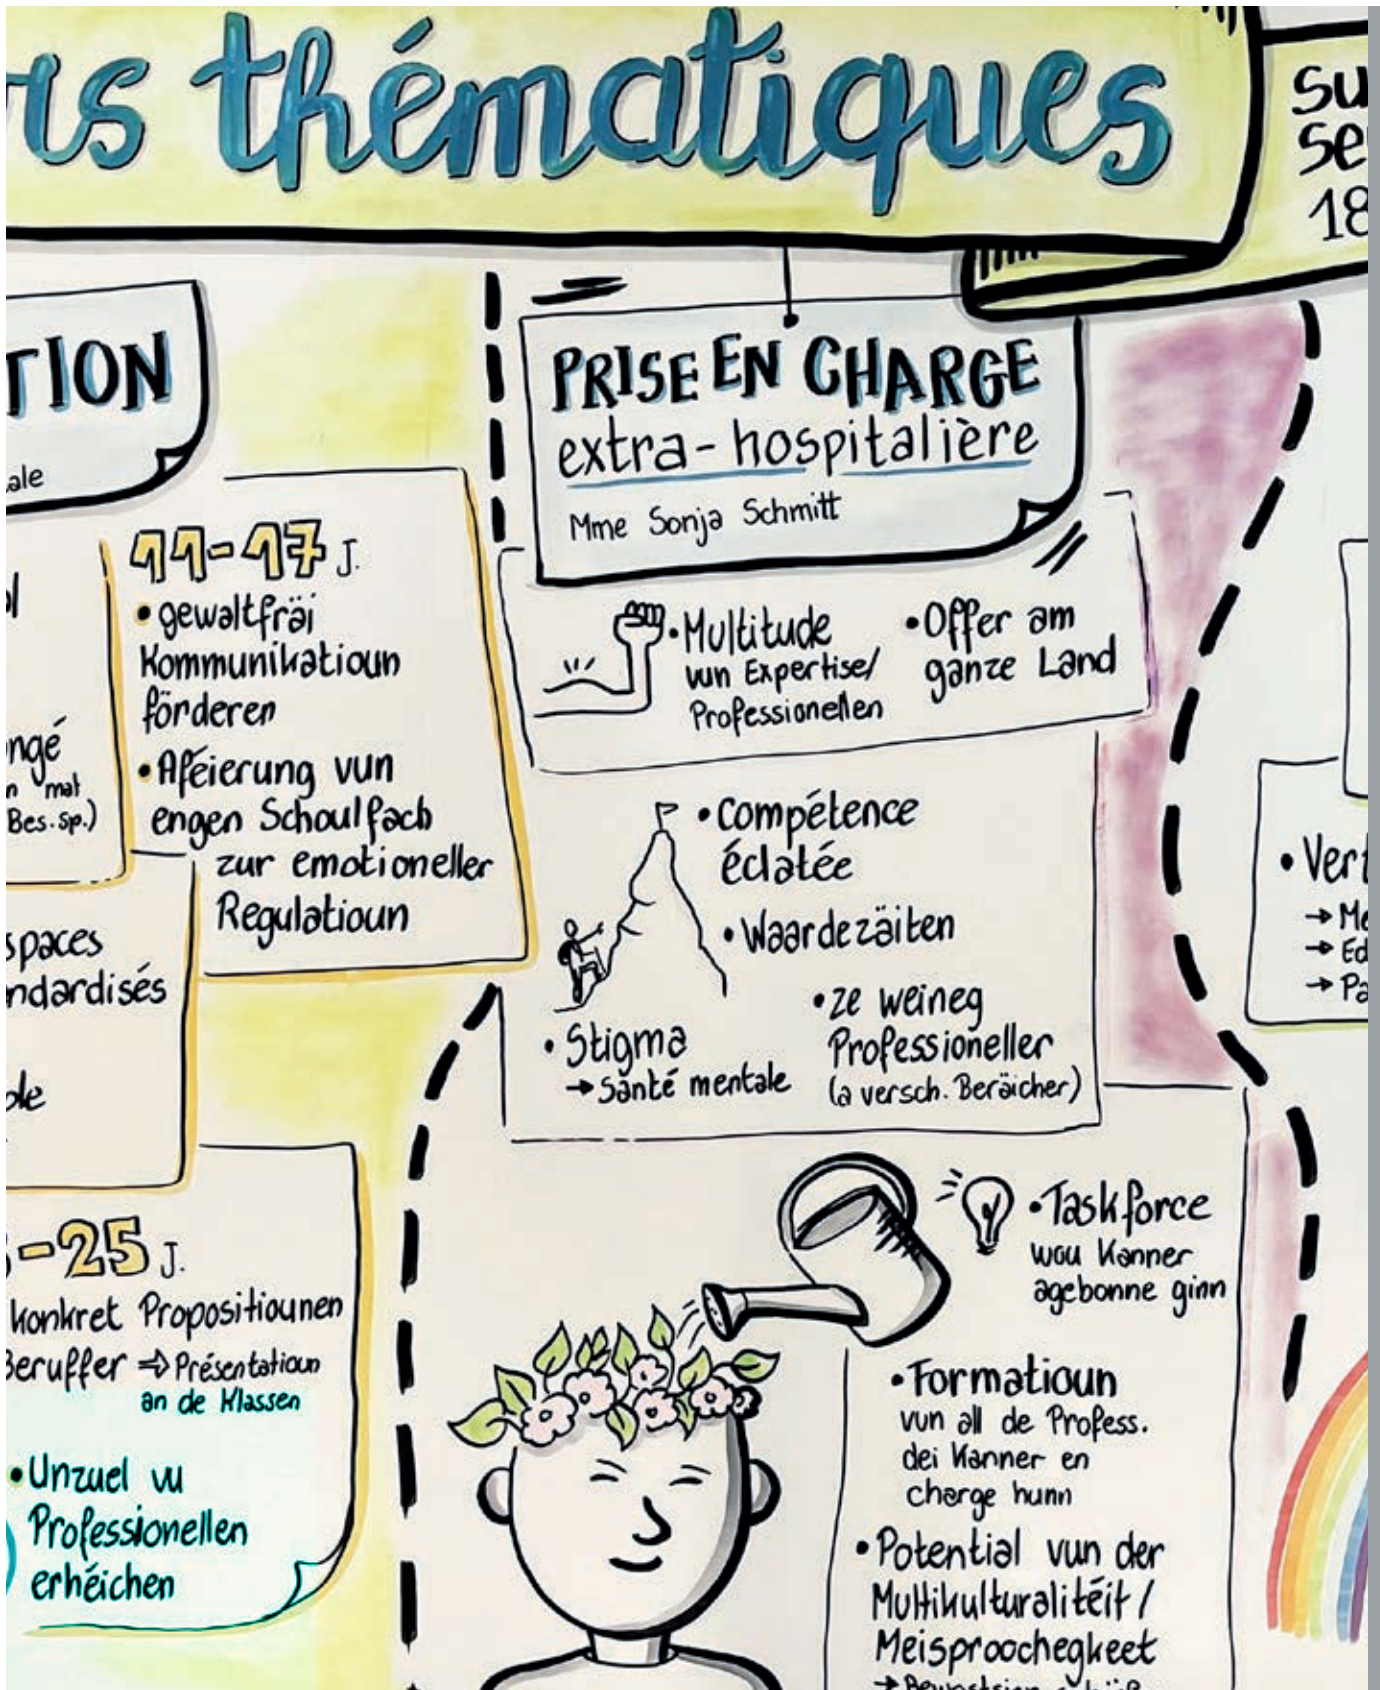 thématiques
su
se
18
TION
ale
11-17 J.
• gewaltfräi
Kommunikatioun
förderen
• Aféierung vun
engen Schoulfach
zur emotioneller
Regulatioun
ngé
mat
Bes.sp.)
spaces
ndardisés
-25 J.
konkret Propositiounen
Beruffer ⇒ Présentatioun
an de Klassen
• Unzuel vu
Professionellen
erhéichen
PRISE EN CHARGE
extra-hospitalière
Mme Sonja Schmitt
• Multitude
vun Expertise/
Professionellen
• Offer am
ganze Land
• Compétence
éclatée
• Waardezäiten
• Stigma
→ Santé mentale
• ze weineg
Professioneller
(a versch. Beräicher)
• Taskforce
wou Kanner
agebonne ginn
• Formatioun
vun all de Profess.
dei Kanner en
charge hunn
• Potential vun der
Multikulturalitéit/
Meisproochegkeet
• Ver
→ Me
→ Ed
→ Pa